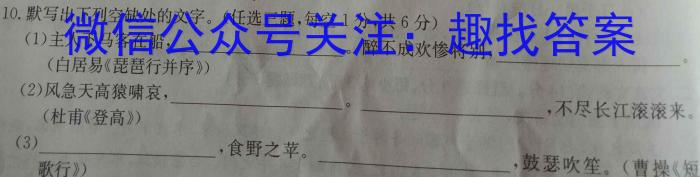 10.默写出下列空缺处的文字。(任选一题,每空1分,共6分)
微信公众号关注：趣找答案
(1)主人下马客在船,____。醉不成欢惨将别,____。
(白居易《琵琶行并序》)
(2)风急天高猿啸哀,____。____,不尽长江滚滚来。
(杜甫《登高》)
(3)____,食野之苹。____,鼓瑟吹笙。(曹操《短
歌行》)